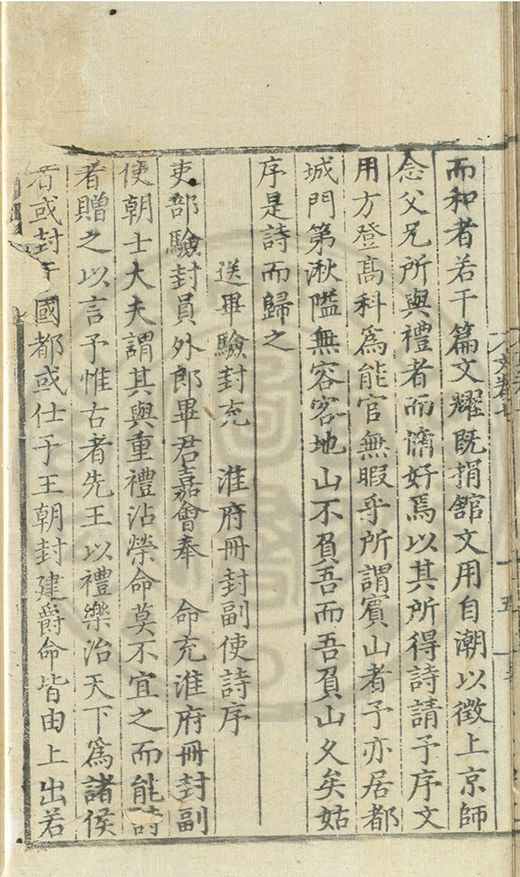 而和者若干篇文耀既捐舘文用自潮以徵上京師
念父兄所與禮者而脩好焉以其所得詩請予序文
用方登髙科爲能官無暇乎所謂賓山者予亦居都
城門第湫隘無容客地山不負吾而吾負山久矣姑
序是詩而歸之
送畢驗封充　淮府冊封副使詩序
吏部驗封員外郎畢君嘉會奉　命充淮府冊封副
使朝士大夫謂其與重禮沾榮命莫不宜之而能詩
者贈之以言予惟古者先王以禮樂治天下爲諸侯
者或封于國都或仕于王朝封建爵命皆由上出若